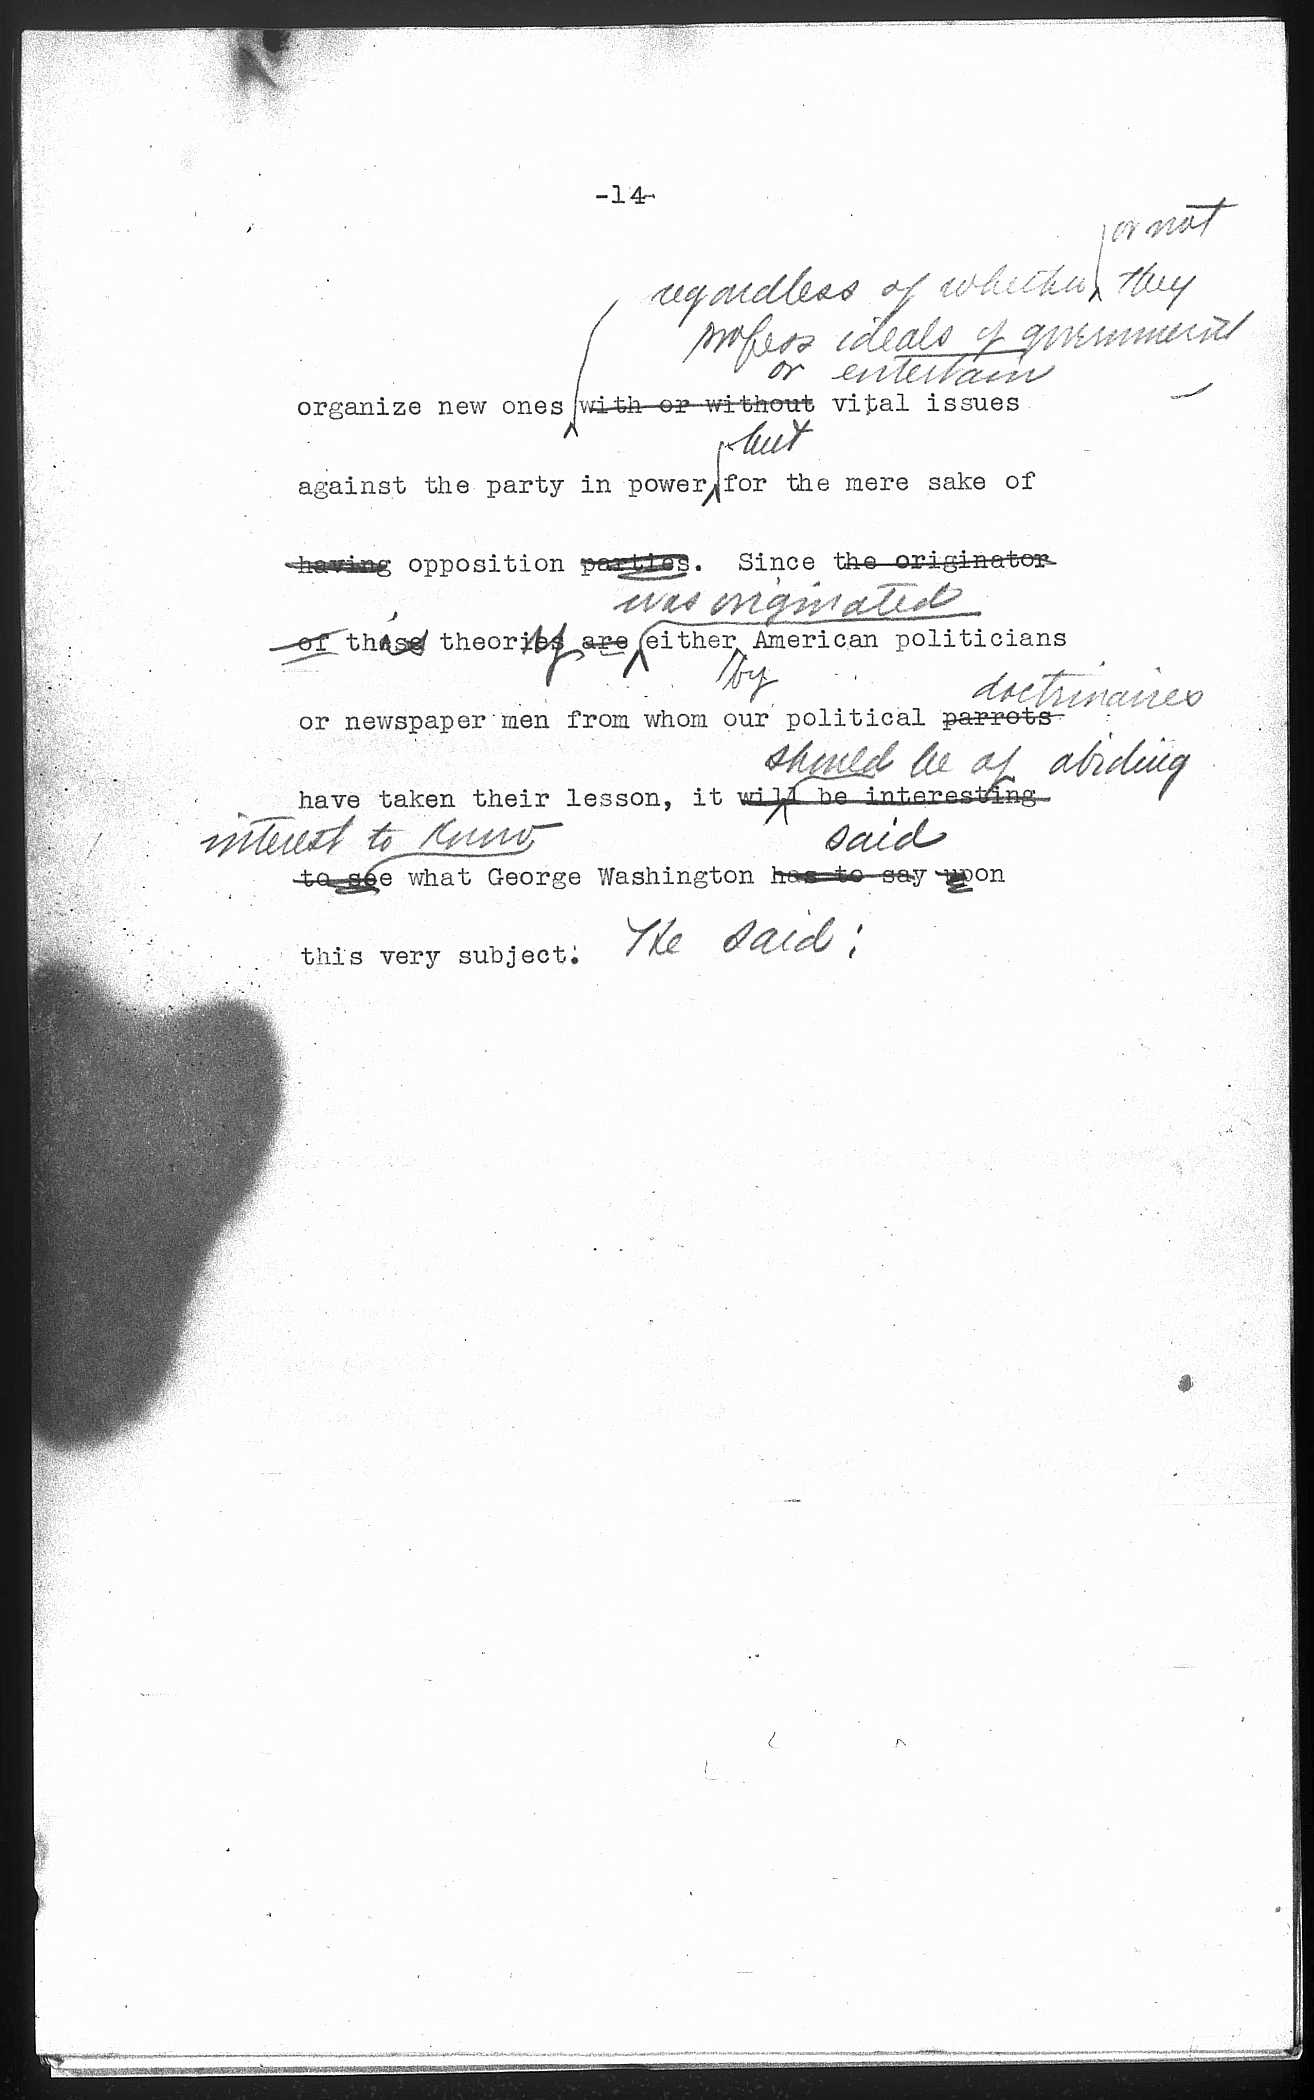 -14-
or not
regardless of whether they
profess ideals of government
or entertain
organize new ones with or without vital issues
but
against the party in power, for the mere sake of
having opposition parties. Since the originator
was originated
of this theory are either American politicians
by
doctrinaires
or newspaper men from whom our political parrots
should be of abiding
have taken their lesson, it will be interesting
interest to know
said
to see what George Washington has to say upon
this very subject: He said: